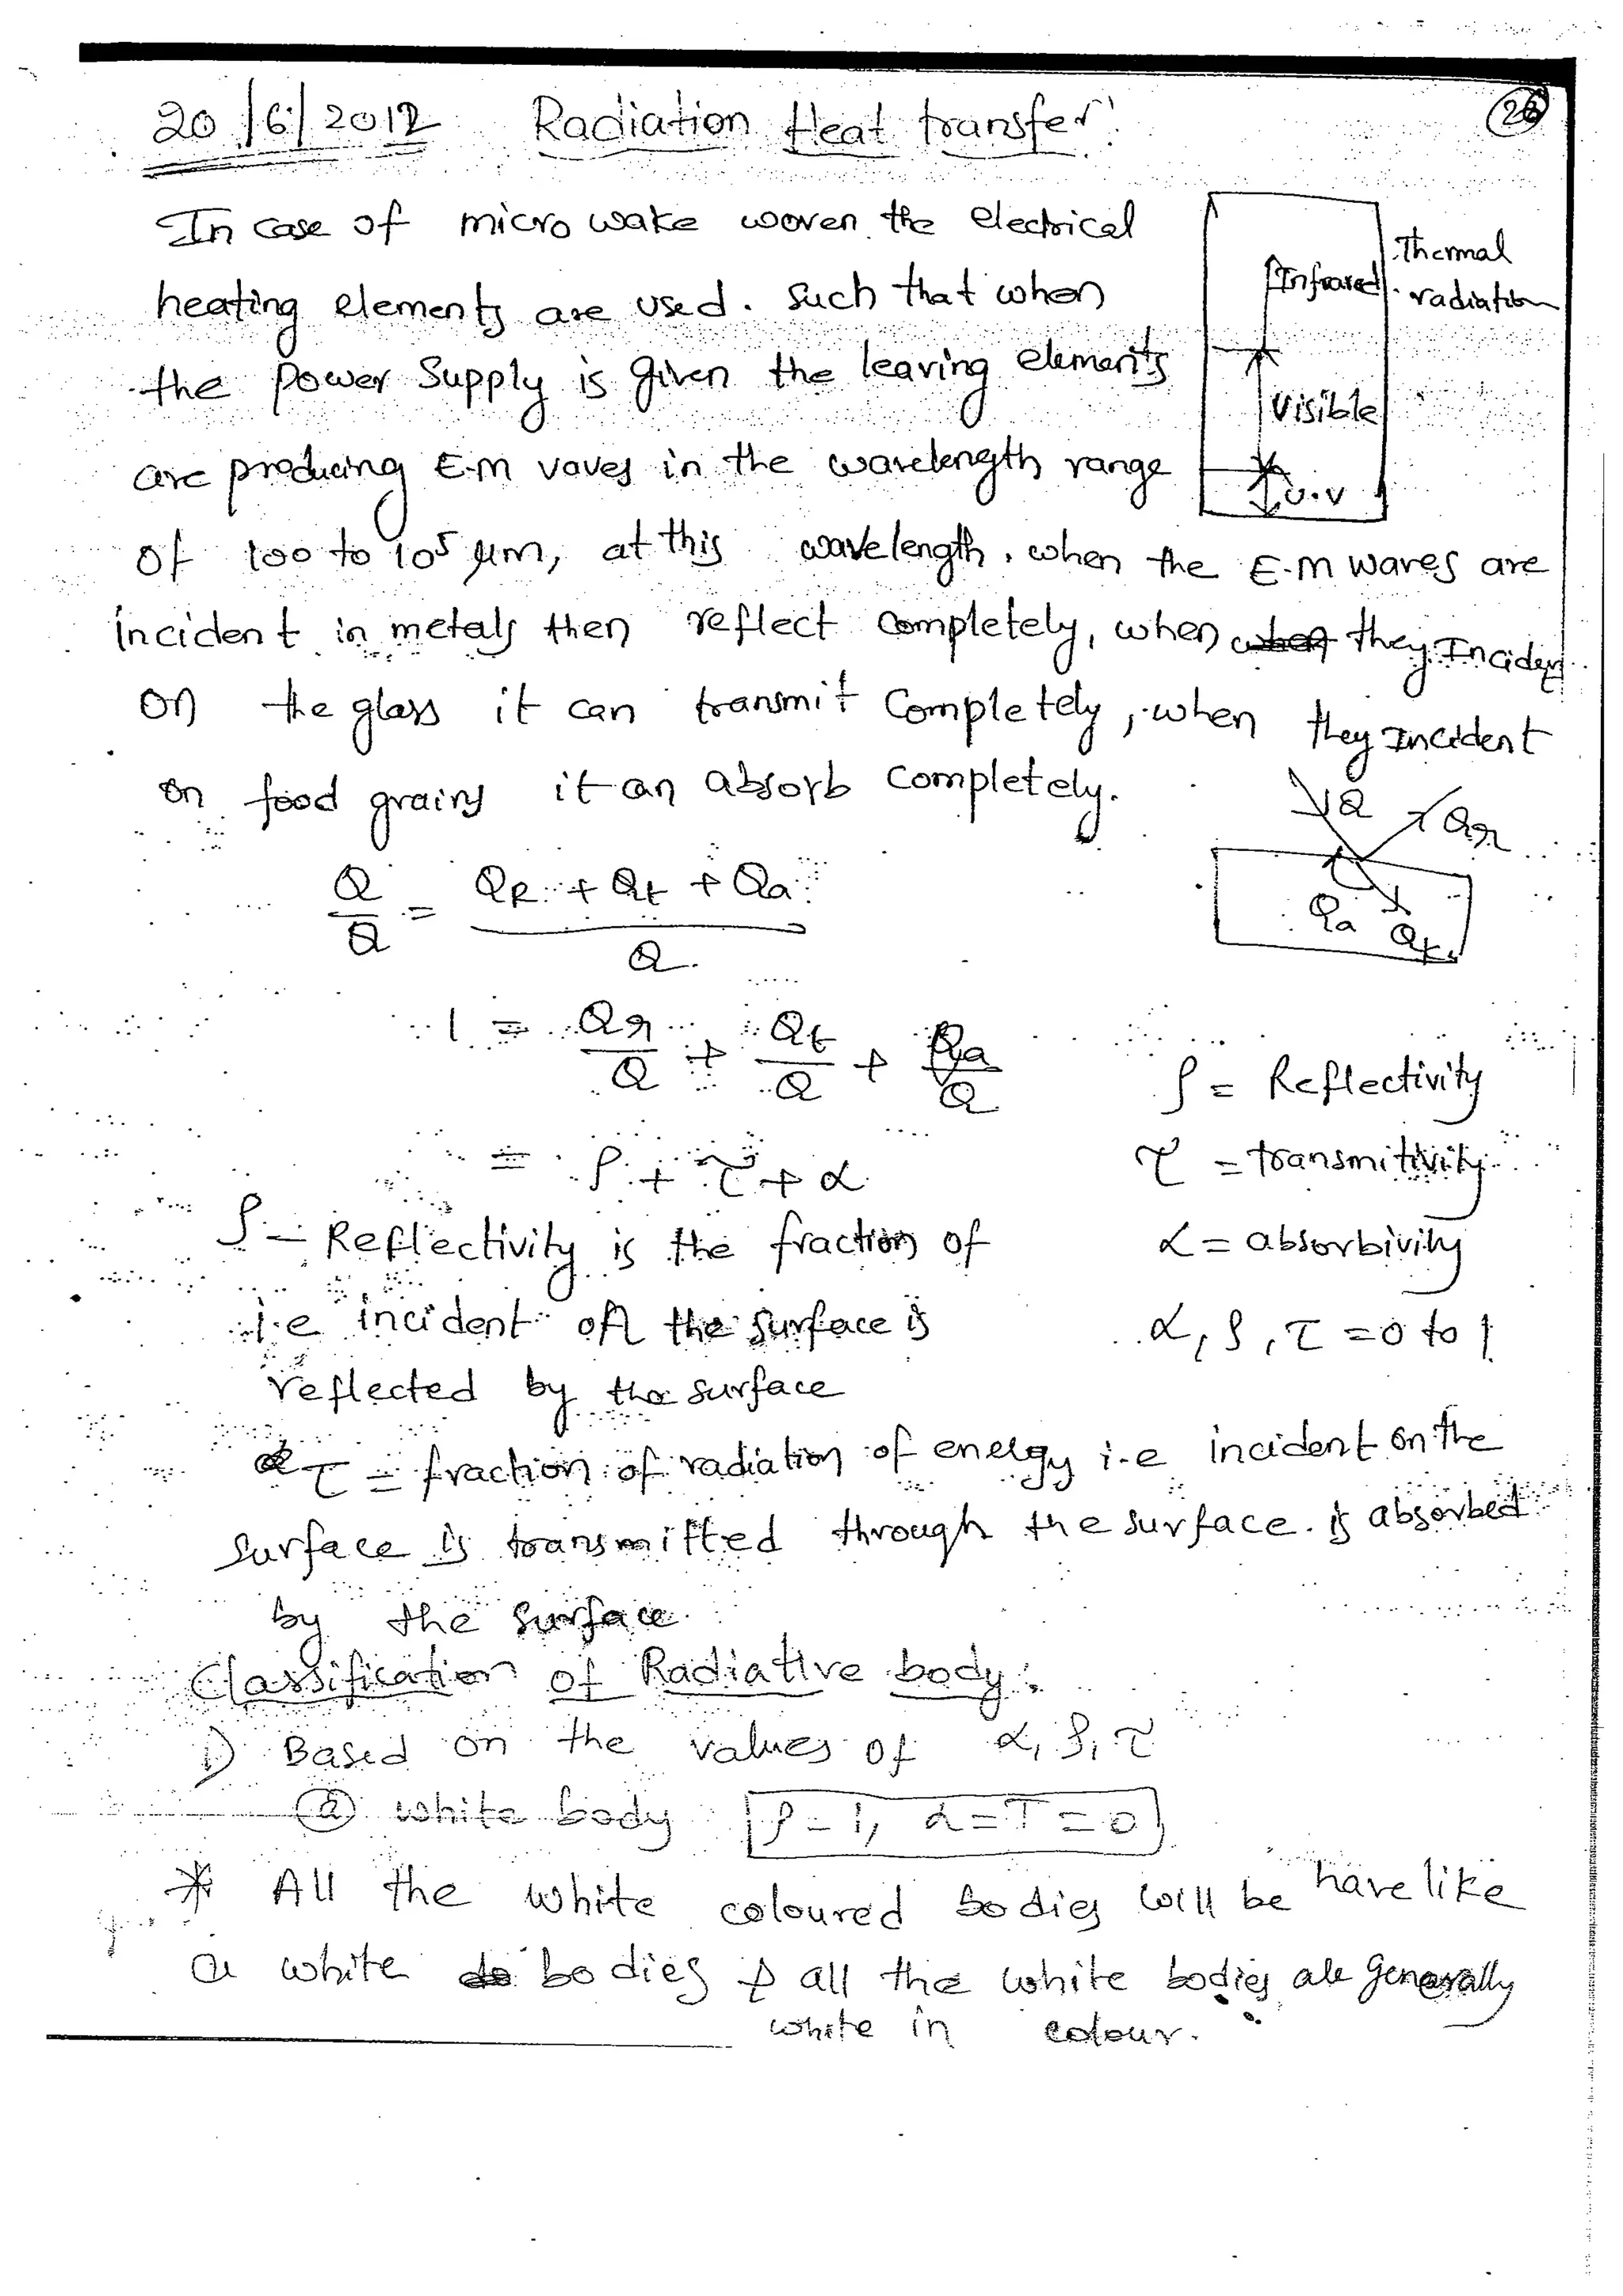 20/6/2012 Radiation Heat transfer:
26
In case of micro wake woven the electrical
heating elements are used. Such that when
the power supply is given the leaving elements
are producing E-m vaves in the wavelength range
of 100 to 10⁵ μm, at this wavelength, when the E-M waves are
incident in metals then reflect completely, when they Incident
on the glass it can transmit completely, when they Incident
on food grains it can absorb completely.
Infrared
Thermal
radiation
Visible
U.V
Q Qr
Qa Qt
Q/Q = (QR + Qt + Qa)/Q
1 = Qr/Q + Qt/Q + Qa/Q
= ρ + τ + α
ρ = Reflectivity
τ = transmitivity
α = absorbivity
α, ρ, τ = 0 to 1
ρ – Reflectivity is the fraction of
i.e incident of the surface is
reflected by the surface
τ = fraction of radiation of energy i-e incident on the
surface is transmitted through the surface. is absorbed
by the surface
Classification of Radiative body:
1) Based on the values of α, ρ, τ
(a) white body ρ=1, α=τ=0
* All the white coloured bodies will be have like
a white bodies & all the white bodies are generally
white in colour.